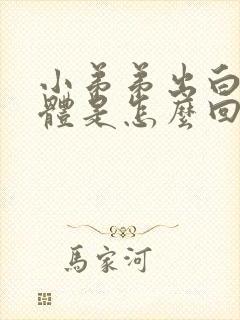 小弟弟出白
體是怎麼回
馬家河